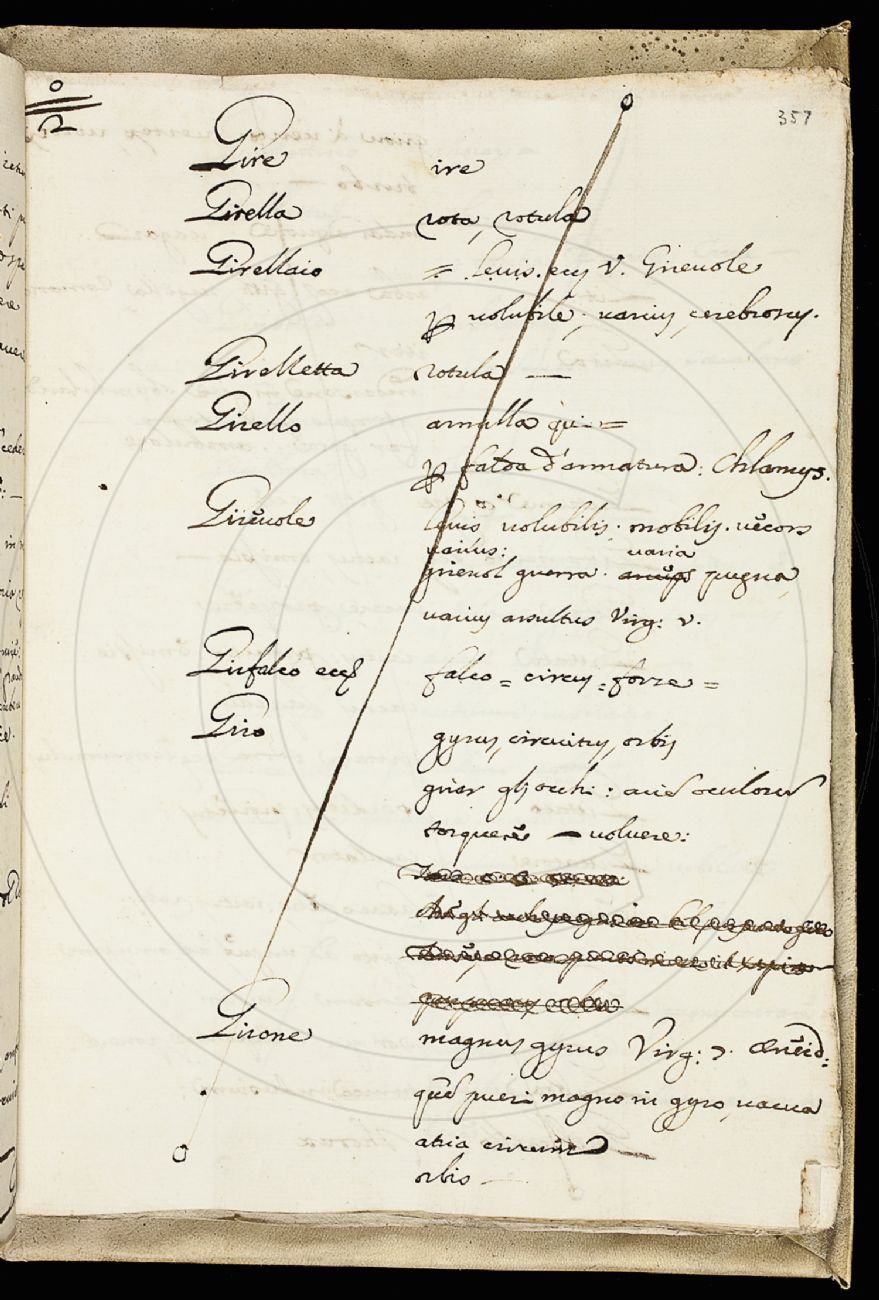 357
Gire ire
Girella rota, rotula
Girellaio = levis. ecc v. Girevole
p volubile, varius, cerebrosus.
Girelletta rotula —
Girello armilla qui =
p falda d'armatura: Chlamys.
Girevole levis volubilis. mobilis. vecors
varius: varia
girevol guerra. pugna,
varius assultus Virg: v.
Girfalco ecc falco = circus = forze =
Giro gyrus, circuitus, orbis
girar gli occhi: aciem oculorum
torquere — volvere:
Girone magnus gyrus Virg: 7. Æneid:
quem pueri magno in gyro, vacua
atria circum —
orbis —